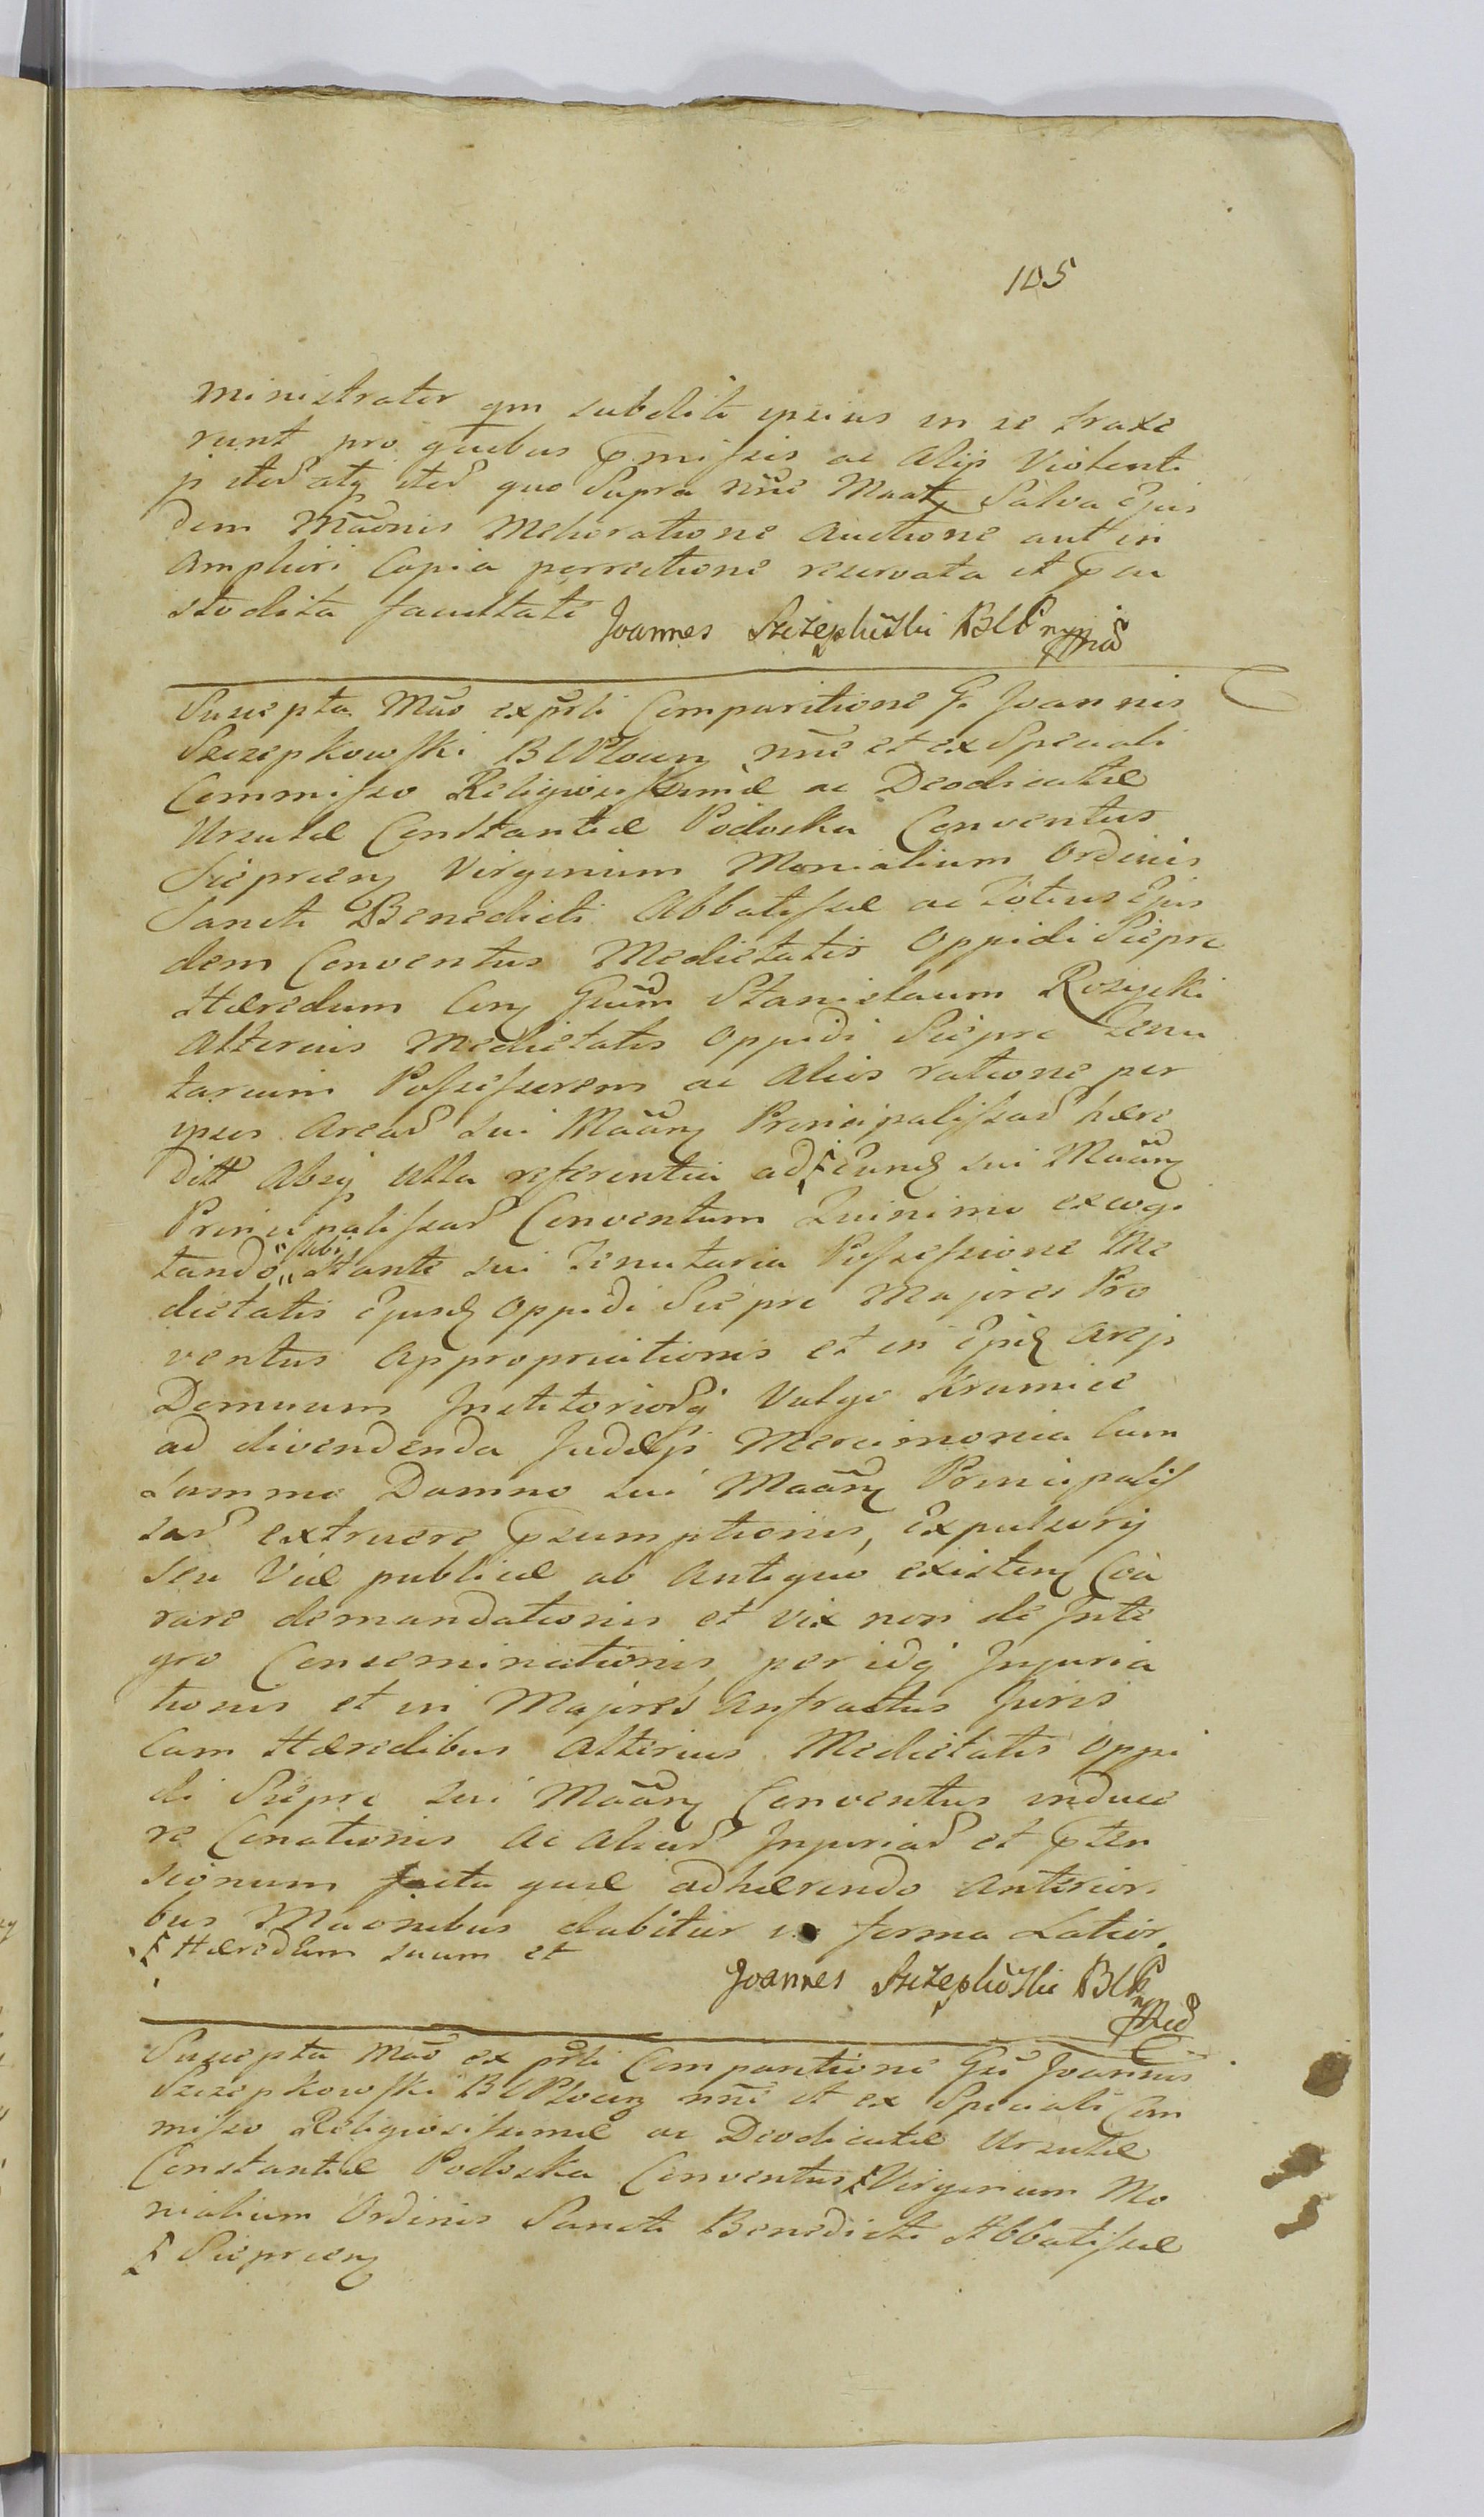 105
ministrator qm subditi ipsius in se traxe
runt pro quibus pmissis ac Alijs Violenti
js iters atq iters quo Supra nne Maat Salva Ejus
dem Maonis Melioratione Auctione aut in
Ampliori Copia porrectione reservata et pcu
stodita facultate
Joannes Szczepkowski BCP mpp
Suscepta Mao ex prsti Comparitione G. Joannis
Szczepkowski BCPlocen nne et ex Speciali
Commisso Religiosissimæ ac Deodicatæ
Ursulæ Constantiæ Podoska Conventus
Sieprcen Virginum Monialium Ordinis
Sancti Benedicti Abbatissæ ac Totius Ejus
dem Conventus Medietatis Oppidi Siepre
Hæredum Con Gnum Stanislaum Rosycki
Alterius Medietatis Oppidi Siepre Tenu
tarium Possessorem ac Alios ratione per
ipsos Areas sui Maan Principalissas hære
ditt Absq ulla referentia ad Eund sui Maan
Principalissas Conventum Quinimo excogi
tando sibi stante sui Tenutaria Possessione Me
dietatis Ejusd Oppidi Siepre Majores Pro
ventus Appropriationis et in Ejusd Areis
Domuum Institoriorq Vulgo Kramice
ad divendenda Judæis Mercimonia Cum
Summo Damno sui Maan Principalis
sas extruere psumptionis, Expulsorij
seu Viæ publicæ ab Antiquo existen Coa
rare demandationis et vix non de Inte
gro Conseminationis per idq Injuria
tionis et in Majores Anfractus Juris
Cum Hæredibus Alterius Medietatis Oppi
di Siepre sui Maan Conventus induce
re Conationis Ac Alias Injurias et pten
sionum facta quæ adhærendo Anteriori
bus Maonibus dabitur in forma Latior
Hæredem suum et
Joannes Szczepkowski BCP
Suscepta Mao ex prsti Comparitione Gn Joannis
Szczepkowski BCPlocen nne et ex Speciali Com
misso Religiosissimæ ac Deodicatæ Ursulæ
Constantiæ Podoska Conventus Virginum Mo
nialium Ordinis Sancti Benedicti Abbatissæ
Sieprcen